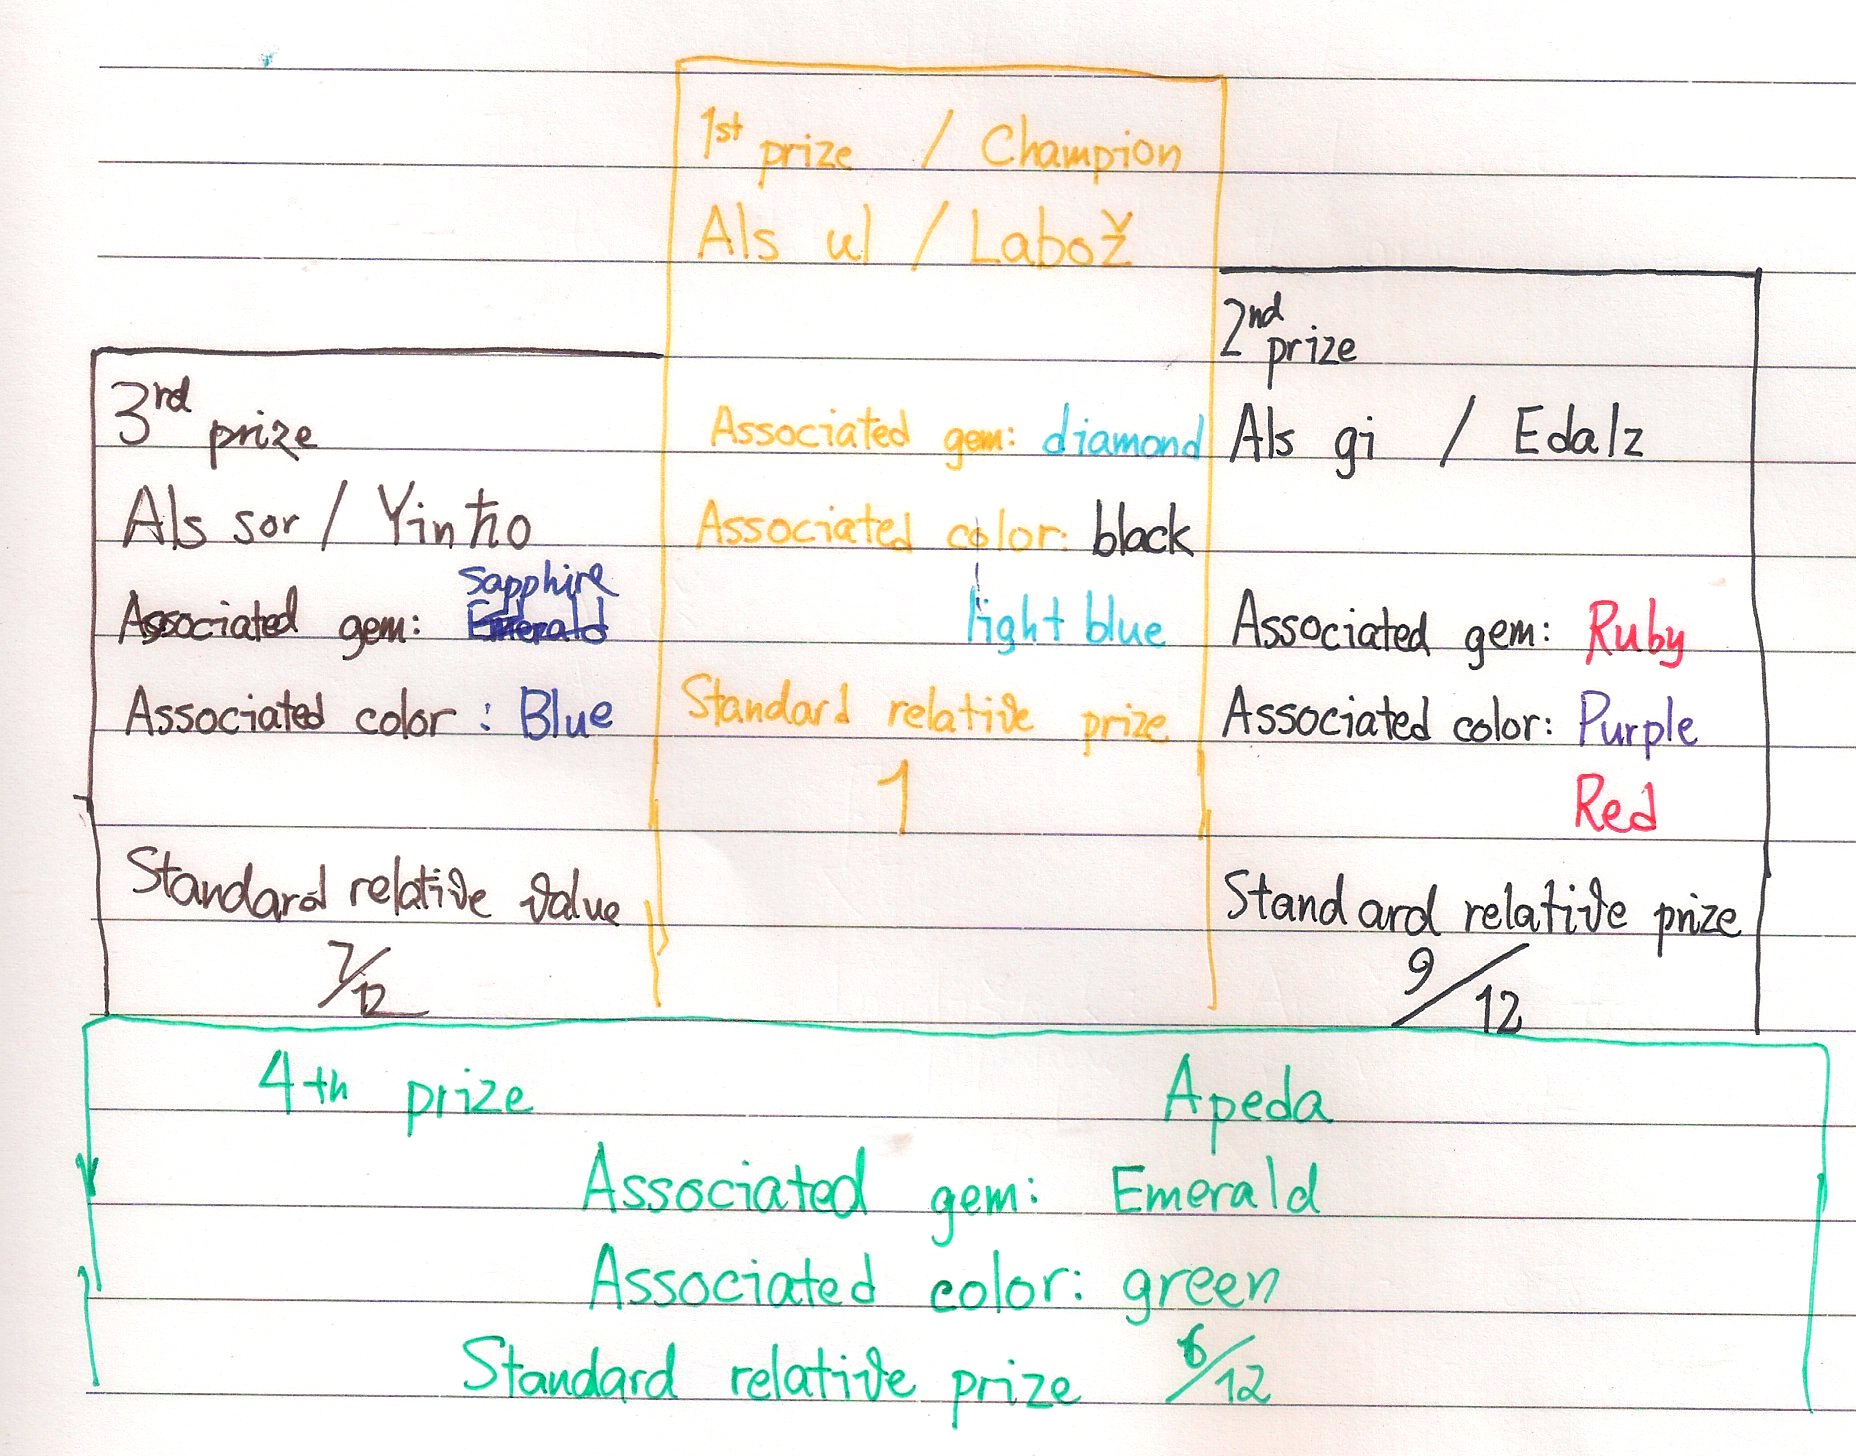 1st prize / Champion
Als ul / Labož
Associated gem: diamond
Associated color: black
light blue
Standard relative prize
1
2nd prize
Als gi / Edalz
Associated gem: Ruby
Associated color: Purple
Red
Standard relative prize
9/12
3rd prize
Als sor / Yinħo
Sapphire
Associated gem: Emerald
Associated color: Blue
Standard relative value
7/12
4th prize Apeda
Associated gem: Emerald
Associated color: green
Standard relative prize 6/12